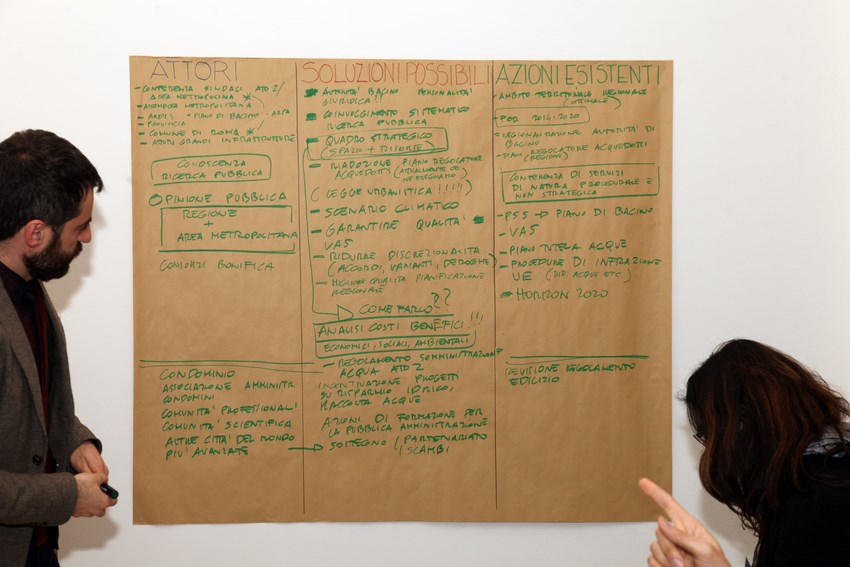 ATTORI
- CONFERENZA SINDACI ATO 2/
AREA METROPOLITANA
- ASSEMBLEA METROPOLITANA
PIANO DI BACINO - AREA
- PROVINCIA
- COMUNE DI ROMA
- ATTORI GRANDI INFRASTRUTTURE
CONOSCENZA
RICERCA PUBBLICA
OPINIONE PUBBLICA
REGIONE
+
AREA METROPOLITANA
CONSORZI BONIFICA
CONDOMINIO
ASSOCIAZIONE AMMINISTR.
CONDOMINI
COMUNITA' PROFESSIONALI
COMUNITA' SCIENTIFICA
ALTRE CITTA' DEL MONDO
PIU' AVANZATE
SOLUZIONI POSSIBILI
AUTORITA' BACINO PERSONALITA'
GIURIDICA!!
COINVOLGIMENTO SISTEMATICO
RICERCA PUBBLICA
- QUADRO STRATEGICO
(SPAZIO + RISORSE)
- RIADOZIONE PIANO REGOLATORE
ACQUEDOTTI (ATTUALMENTE CE
NE FREGHIAMO)
(LEGGE URBANISTICA !!!!)
- SCENARIO CLIMATICO
- GARANTIRE QUALITA'
VAS
- RIDURRE DISCREZIONALITA'
(ACCORDI, VARIANTI, DEROGHE)
- MIGLIORE QUALITA' PIANIFICAZIONE
REGIONALE
COME FARLO??
ANALISI COSTI BENEFICI!!!
ECONOMICI, SOCIALI, AMBIENTALI
- REGOLAMENTO SOMMINISTRAZIONE
ACQUA ATO2
INCENTIVAZIONE PROGETTI
SU RISPARMIO IDRICO,
RACCOLTA ACQUE
AZIONI DI FORMAZIONE PER
LA PUBBLICA AMMINISTRAZIONE
SOSTEGNO / PARTENARIATO
/ SCAMBI
AZIONI ESISTENTI
- AMBITO TERRITORIALE REGIONALE
(OTTIMALE)
- POR 2014-2020
- REGIONALIZZAZIONE AUTORITA' DI
BACINO
- PIANO REGOLATORE ACQUEDOTTI
(REGIONE)
CONFERENZA DI SERVIZI
DI NATURA PROCEDURALE E
NON STRATEGICA
- PS5 → PIANO DI BACINO
- VAS
- PIANO TUTELA ACQUE
- PROCEDURE DI INFRAZIONE
UE (DIR. ACQUE ETC.)
- HORIZON 2020
REVISIONE REGOLAMENTO
EDILIZIO